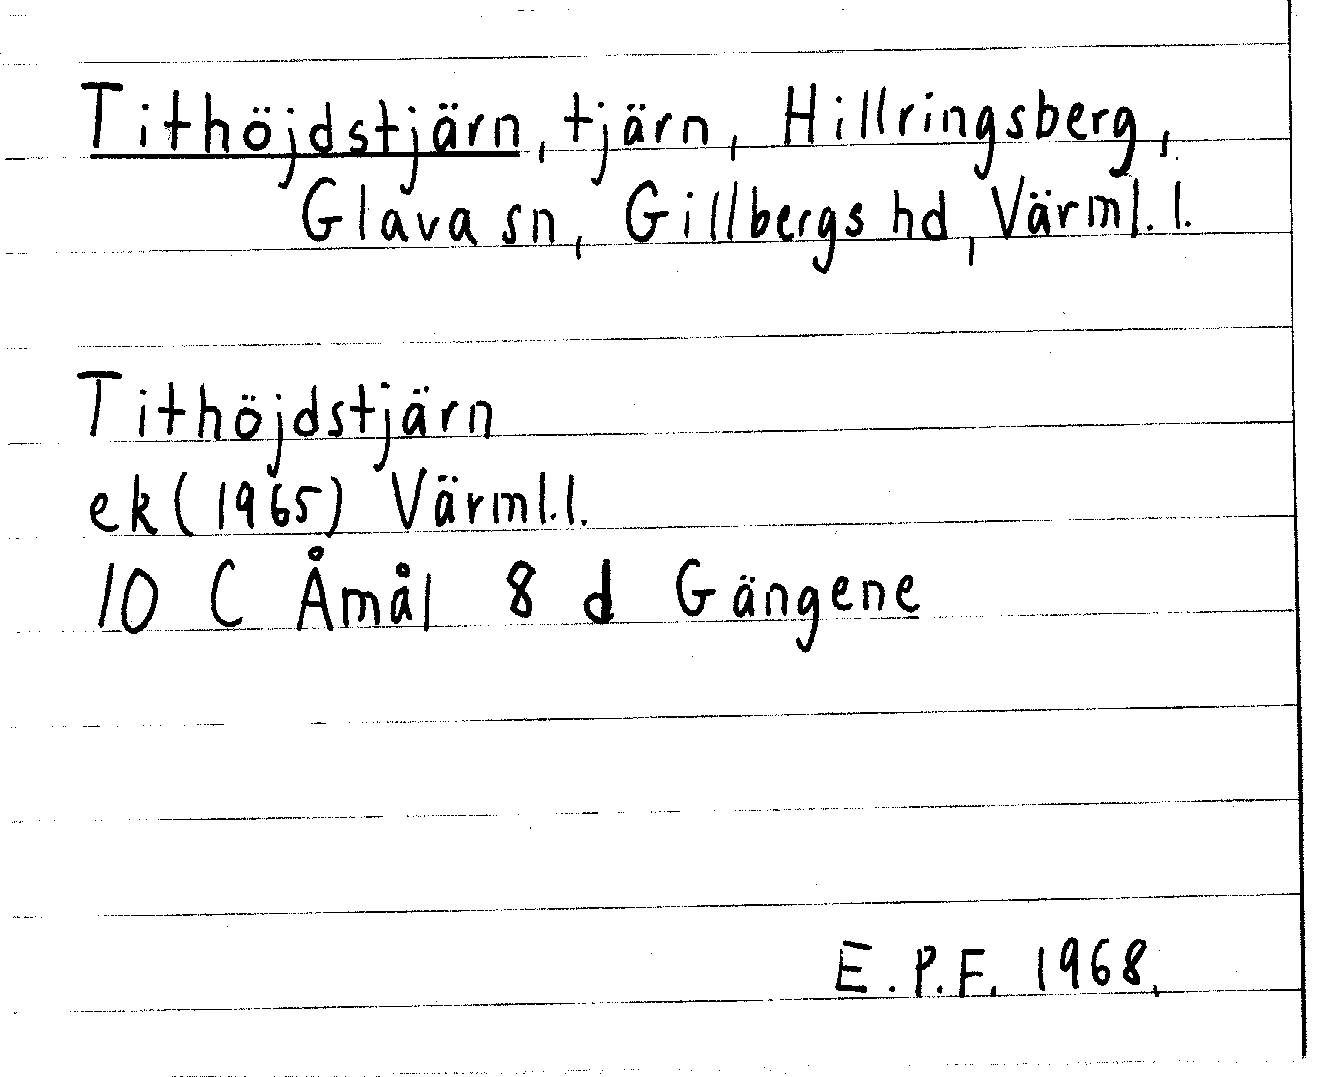 Tithöjdstjärn, tjärn, Hillringsberg,
Glava sn, Gillbergs hd, Värml. l.
Tithöjdstjärn
ek (1965) Värml. l.
10 C Åmål 8 d Gängene
E. P. F. 1968.